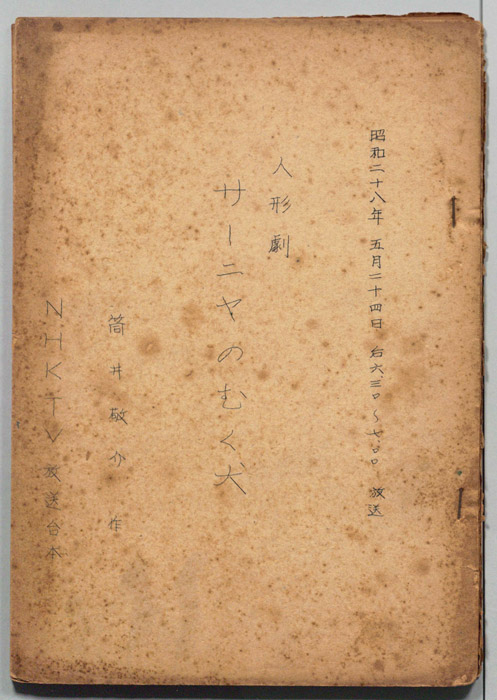 昭和二十八年 五月二十四日 后六、三〇～七、〇〇 放送
人形劇
サーニヤのむく犬
筒井敬介 作
NHKTV放送台本